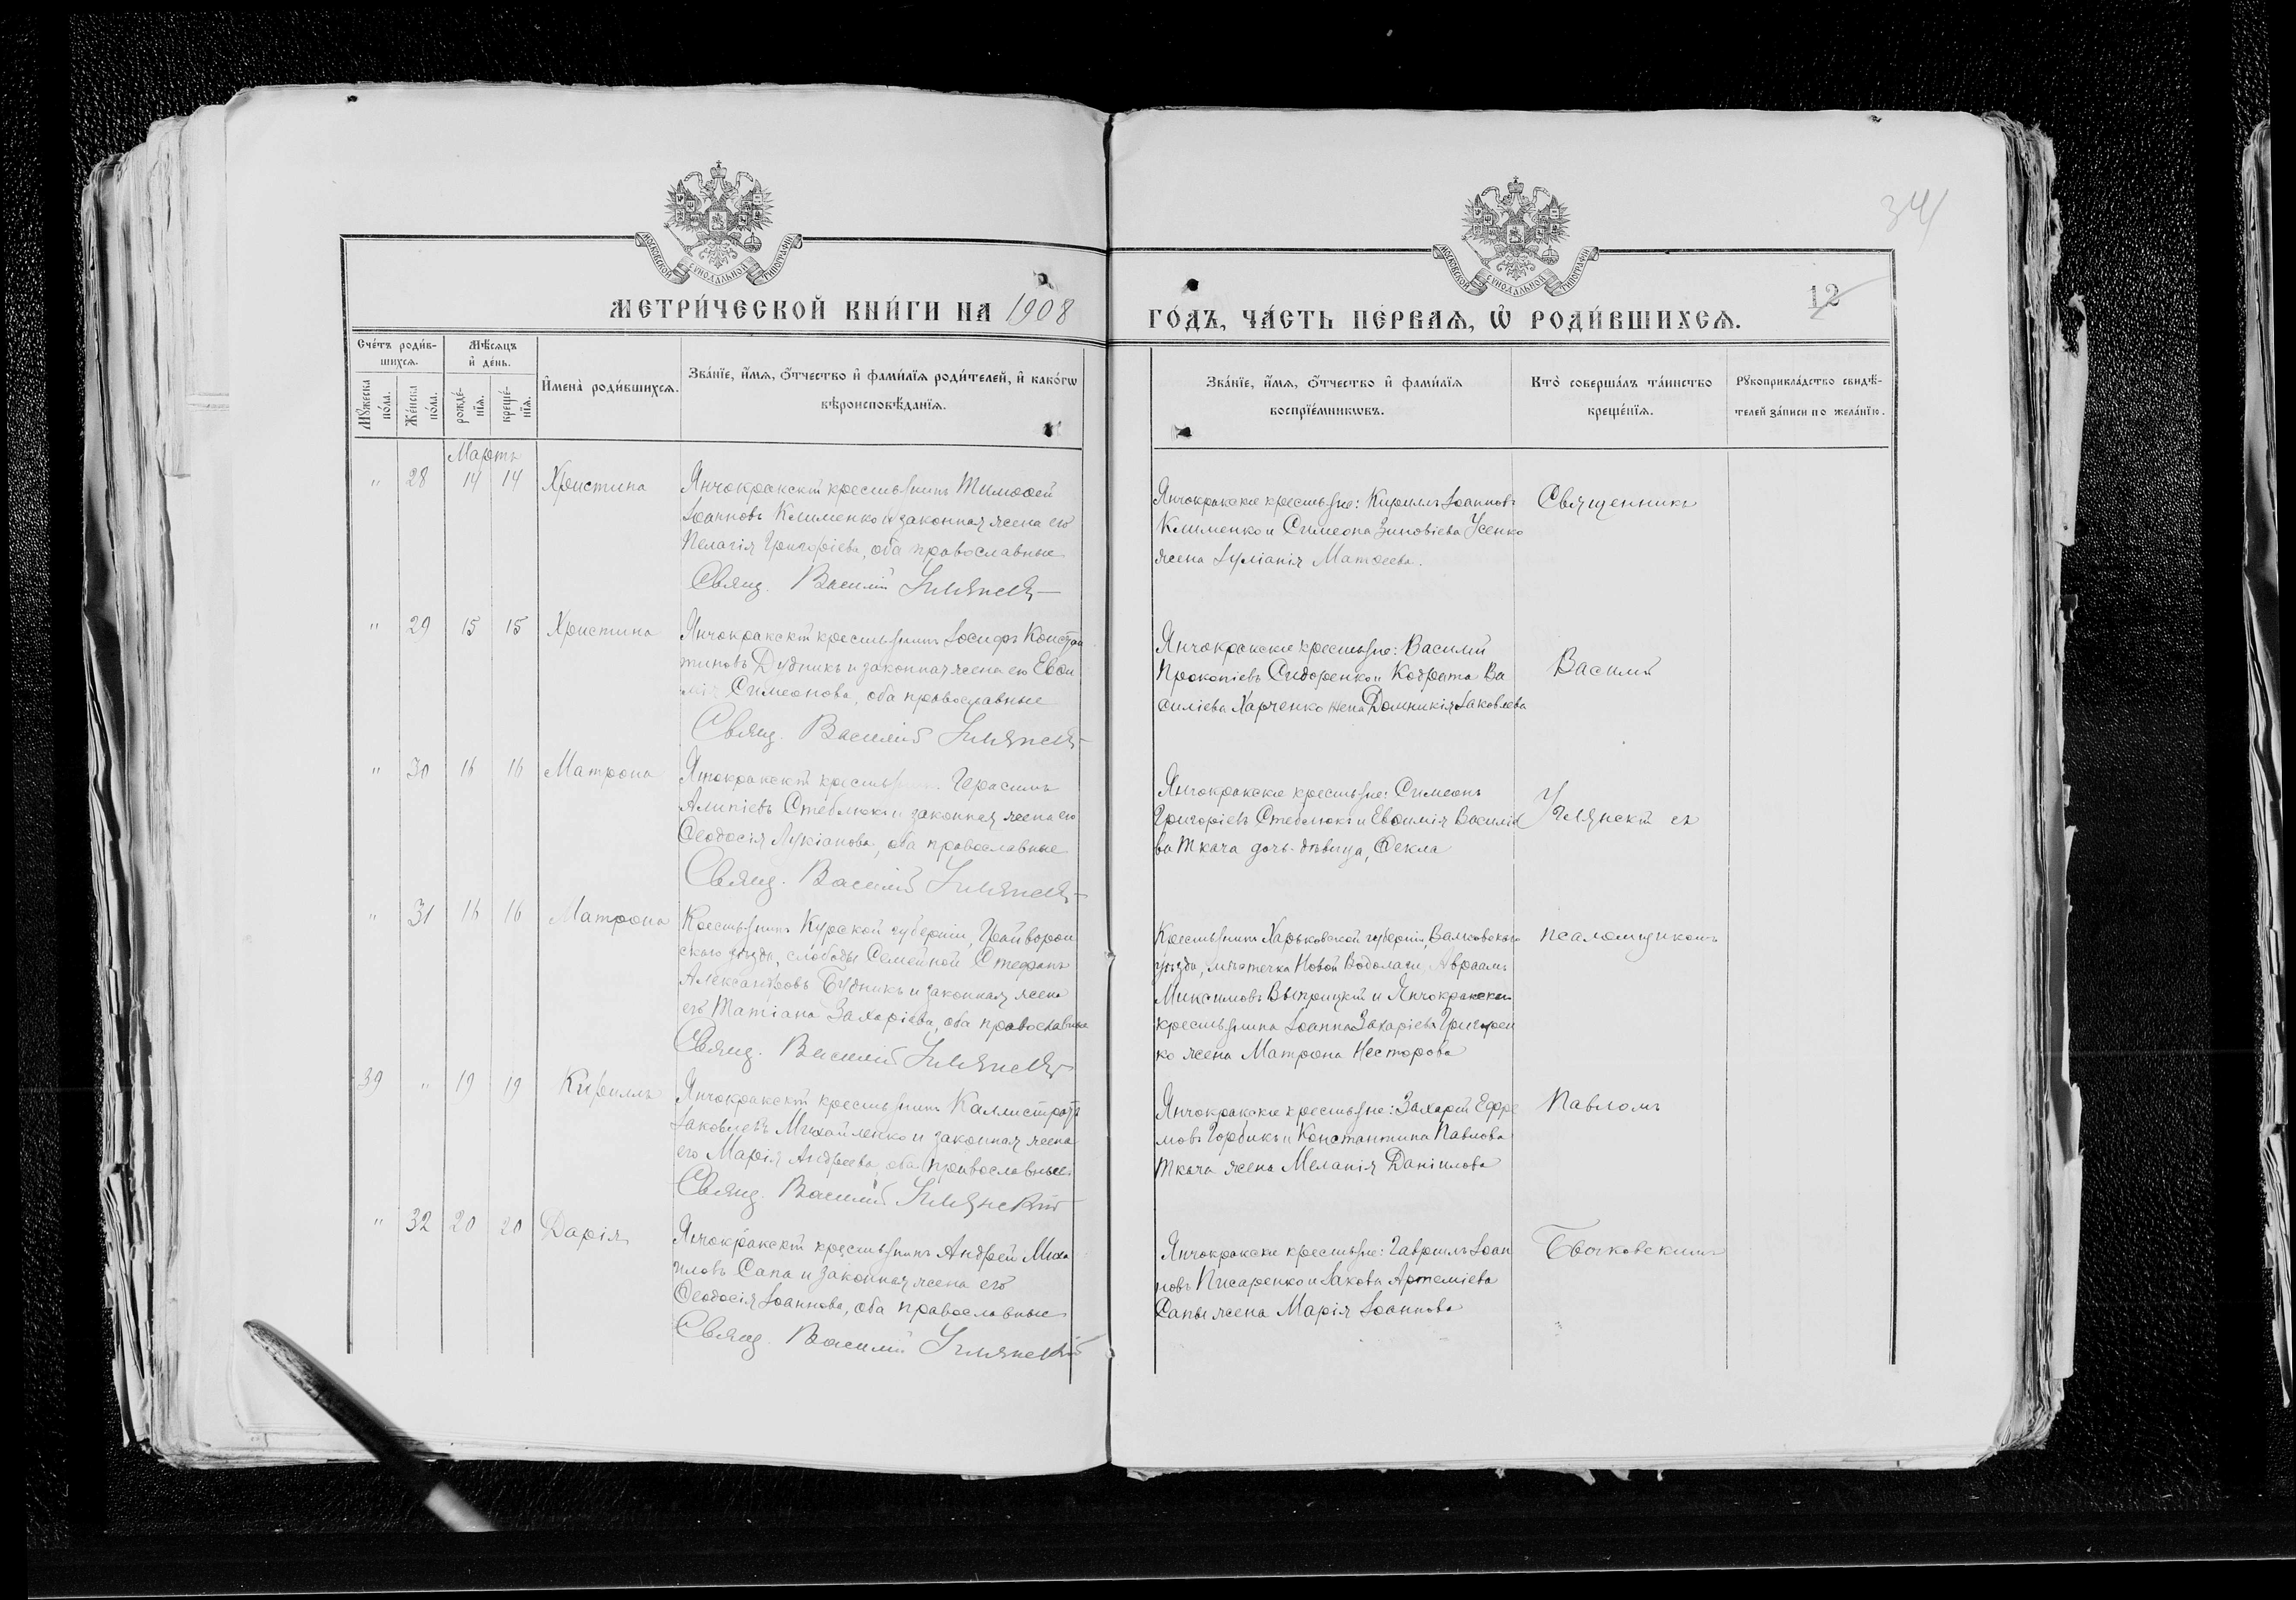 341
МОСКОВСКОЙ СѴНОДАЛЬНОЙ ТИПОГРАФІИ
МОСКОВСКОЙ СѴНОДАЛЬНОЙ ТИПОГРАФІИ
МЕТРИ́ЧЕСКОЙ КНИ́ГИ НА 1908
ГО́ДЪ, ЧА́СТЬ ПЕ́РВАЯ, Ѡ РОДИ́ВШИХСЯ.
12
Сче́тъ роди́в-
шихся.
Мѣ́сяцъ
и де́нь.
Му́жеска по́ла.
Же́нска по́ла.
рожде́-нїя.
креще́-нїя.
Имена̀ роди́вшихся.
Зва́нїе, и́мя, о́тчество и фами́лїя роди́телей, и како́гѡ
вѣроисповѣ́данїя.
Зва́нїе, и́мя, о́тчество и фами́лїя
воспрїе́мникѡвъ.
Кто̀ соверша́лъ та́инство
креще́нїя.
Рꙋкоприкла́дство свидѣ́-
телей за́писи по жела́нїю.
Мартъ
" 28 14 14 Христина
Янчокракскій крестьянинъ Тимофей
Іоанновъ Клименко и законная жена его
Пелагія Григоріева, оба православные
Свящ. Василій
Янчокракскіе крестьяне: Кириллъ Іоанновъ
Клименко и Симеона Зиновіева Усенко
жена Іуліанія Матѳеева.
Священникъ
" 29 15 15 Христина
Янчокракскій крестьянинъ Іосифъ Констан
тиновъ Дудникъ и законная жена его Евфи
мія Симеонова, оба православные
Свящ. Василій
Янчокракскіе крестьяне: Василій
Прокопіевъ Сидоренко и Кодрата Ва
силіева Харченко жена Домникія Іаковлева
Василій
" 30 16 16 Матрона
Янчокракскій крестьянинъ Герасимъ
Алипіевъ Стеблюкъ и законная жена его
Ѳеодосія Лукіанова, оба православные
Свящ. Василій
Янчокракскіе крестьяне: Симеонъ
Григоріевъ Стеблюкъ и Евфимія Василіе
ва Ткача дочь-дѣвица, Ѳекла
съ
" 31 16 16 Матрона
Крестьянинъ Курской губерніи, Грайворон
скаго уѣзда, слободы Семейной Стефанъ
Александровъ Будникъ и законная жена
его Татіана Захаріева, оба православные
Свящ. Василій
Крестьянинъ Харьковской губерніи, Валковскаго
уѣзда, мѣстечка Новой Водолаги, Авраамъ
Максимовъ и Янчокракскаго
крестьянина Іоанна Захаріева Григорен
ко жена Матрона Несторова
псаломщикомъ
39 " 19 19 Кириллъ
Янчокракскій крестьянинъ Каллистратъ
Іаковлевъ Михайленко и законная жена
его Марія Андреева, оба православные
Свящ. Василій
Янчокракскіе крестьяне: Захарій Ефре
мовъ Горбикъ и Константина Павлова
Ткача жена Меланія Даніилова
Павломъ
" 32 20 20 Дарія
Янчокракскій крестьянинъ Андрей Миха
иловъ Сапа и законная жена его
Ѳеодосія Іоаннова, оба православные
Свящ. Василій
Янчокракскіе крестьяне: Гавріилъ Іоан
новъ Писаренко и Іакова Артеміева
Сапы жена Марія Іоаннова
Бычковскимъ